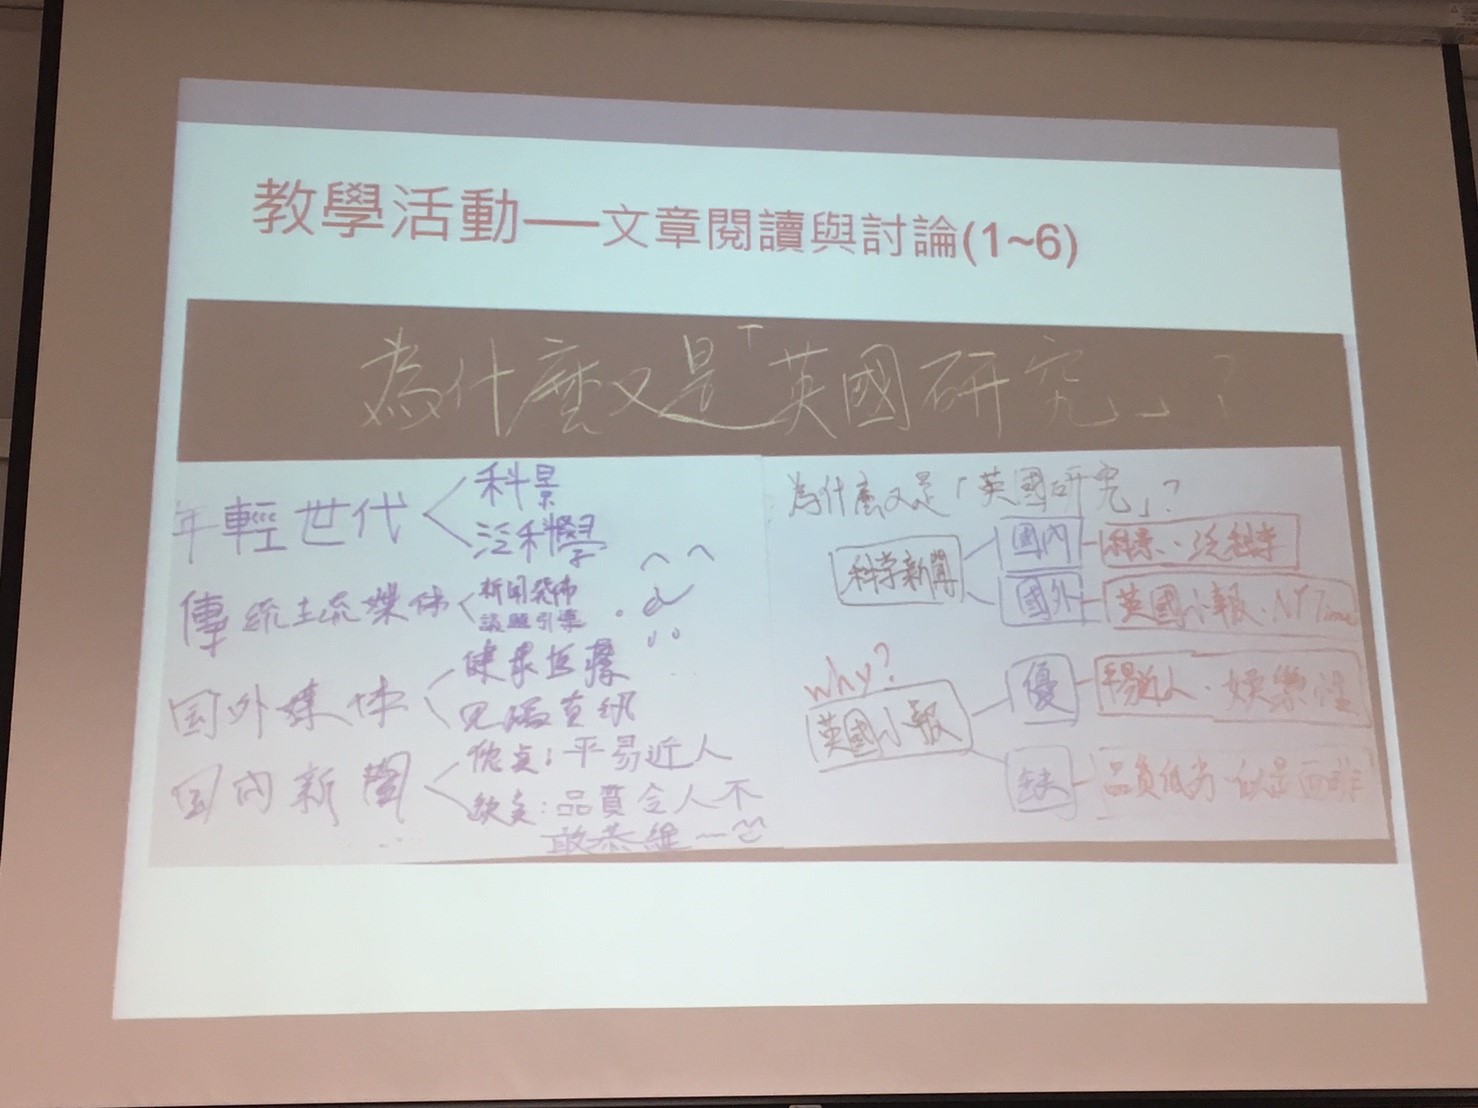 教學活動──文章閱讀與討論(1~6)
為什麼又是「英國研究」？
年輕世代
科景
泛科學
傳統主流媒体
新聞發佈
議題引導
国外媒体
健康医療
国內新聞
优点：平易近人
缺点：品質令人不
敢恭維～
為什麼又是「英國研究」？
科学新聞
國內
科景、泛科学
國外
英國小報、NY Times
why?
英國小報
優
平易近人、娛樂性
缺
品質低劣、似是而非